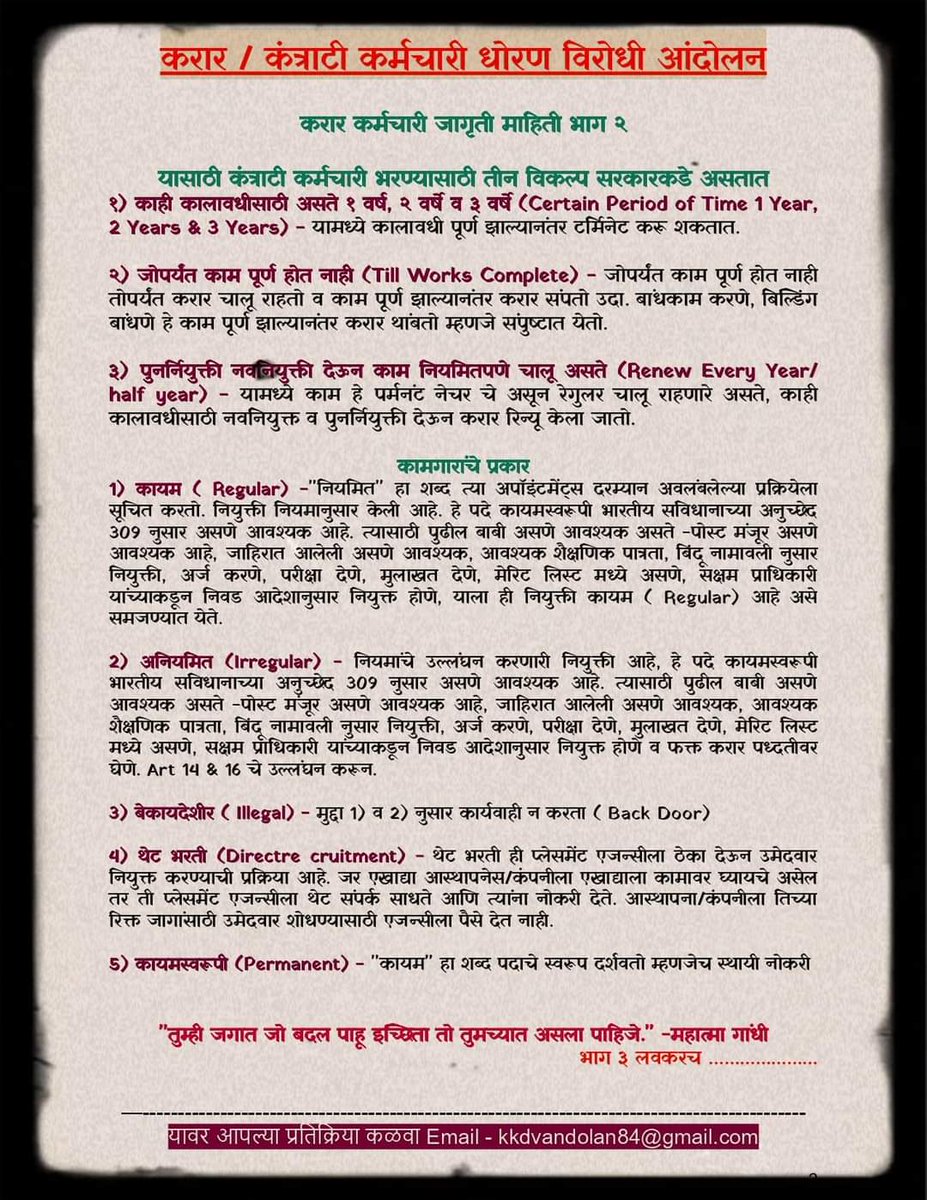 करार / कंत्राटी कर्मचारी धोरण विरोधी आंदोलन
करार कर्मचारी जागृती माहिती भाग २
यासाठी कंत्राटी कर्मचारी भरण्यासाठी तीन विकल्प सरकारकडे असतात
१) काही कालावधीसाठी असते १ वर्ष, २ वर्षे व ३ वर्षे (Certain Period of Time 1 Year,
2 Years & 3 Years) - यामध्ये कालावधी पूर्ण झाल्यानंतर टर्मिनेट करू शकतात.
२) जोपर्यंत काम पूर्ण होत नाही (Till Works Complete) - जोपर्यंत काम पूर्ण होत नाही
तोपर्यंत करार चालू राहतो व काम पूर्ण झाल्यानंतर करार संपतो उदा. बांधकाम करणे, बिल्डिंग
बांधणे हे काम पूर्ण झाल्यानंतर करार थांबतो म्हणजे संपुष्टात येतो.
३) पुनर्नियुक्ती नवनियुक्ती देऊन काम नियमितपणे चालू असते (Renew Every Year/
half year) - यामध्ये काम हे पर्मनंट नेचर चे असून रेगुलर चालू राहणारे असते, काही
कालावधीसाठी नवनियुक्त व पुनर्नियुक्ती देऊन करार रिन्यू केला जातो.
कामगारांचे प्रकार
1) कायम ( Regular) -"नियमित" हा शब्द त्या अपॉइंटमेंट्स दरम्यान अवलंबलेल्या प्रक्रियेला
सूचित करतो. नियुक्ती नियमानुसार केली आहे. हे पदे कायमस्वरूपी भारतीय सविधानाच्या अनुच्छेद
309 नुसार असणे आवश्यक आहे. त्यासाठी पुढील बाबी असणे आवश्यक असते -पोस्ट मंजूर असणे
आवश्यक आहे, जाहिरात आलेली असणे आवश्यक, आवश्यक शैक्षणिक पात्रता, बिंदू नामावली नुसार
नियुक्ती, अर्ज करणे, परीक्षा देणे, मुलाखत देणे, मेरिट लिस्ट मध्ये असणे, सक्षम प्राधिकारी
यांच्याकडून निवड आदेशानुसार नियुक्त होणे, याला ही नियुक्ती कायम ( Regular) आहे असे
समजण्यात येते.
2) अनियमित (Irregular) - नियमांचे उल्लंघन करणारी नियुक्ती आहे, हे पदे कायमस्वरूपी
भारतीय सविधानाच्या अनुच्छेद 309 नुसार असणे आवश्यक आहे. त्यासाठी पुढील बाबी असणे
आवश्यक असते -पोस्ट मंजूर असणे आवश्यक आहे, जाहिरात आलेली असणे आवश्यक, आवश्यक
शैक्षणिक पात्रता, बिंदू नामावली नुसार नियुक्ती, अर्ज करणे, परीक्षा देणे, मुलाखत देणे, मेरिट लिस्ट
मध्ये असणे, सक्षम प्राधिकारी यांच्याकडून निवड आदेशानुसार नियुक्त होणे व फक्त करार पध्दतीवर
घेणे. Art 14 & 16 चे उल्लंघन करून.
3) बेकायदेशीर ( Illegal) - मुद्दा 1) व 2) नुसार कार्यवाही न करता ( Back Door)
4) थेट भरती (Directre cruitment) - थेट भरती ही प्लेसमेंट एजन्सीला ठेका देऊन उमेदवार
नियुक्त करण्याची प्रक्रिया आहे. जर एखाद्या आस्थापनेस/कंपनीला एखाद्याला कामावर घ्यायचे असेल
तर ती प्लेसमेंट एजन्सीला थेट संपर्क साधते आणि त्यांना नोकरी देते. आस्थापना/कंपनीला तिच्या
रिक्त जागांसाठी उमेदवार शोधण्यासाठी एजन्सीला पैसे देत नाही.
5) कायमस्वरूपी (Permanent) - "कायम" हा शब्द पदाचे स्वरूप दर्शवतो म्हणजेच स्थायी नोकरी
"तुम्ही जगात जो बदल पाहू इच्छिता तो तुमच्यात असला पाहिजे." -महात्मा गांधी
भाग ३ लवकरच .....................
यावर आपल्या प्रतिक्रिया कळवा Email - kkdvandolan84@gmail.com